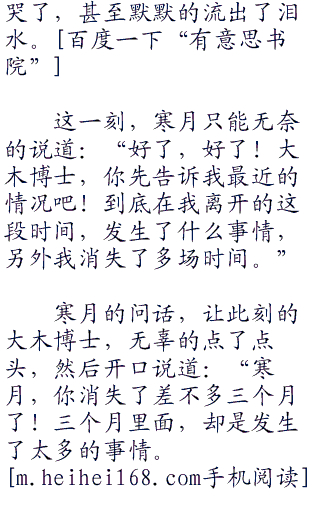 哭了，甚至默默的流出了泪
水。[百度一下“有意思书
院”]
这一刻，寒月只能无奈
的说道：“好了，好了！大
木博士，你先告诉我最近的
情况吧！到底在我离开的这
段时间，发生了什么事情，
另外我消失了多场时间。”
寒月的问话，让此刻的
大木博士，无辜的点了点
头，然后开口说道：“寒
月，你消失了差不多三个月
了！三个月里面，却是发生
了太多的事情。
[m.heihei168.com手机阅读]